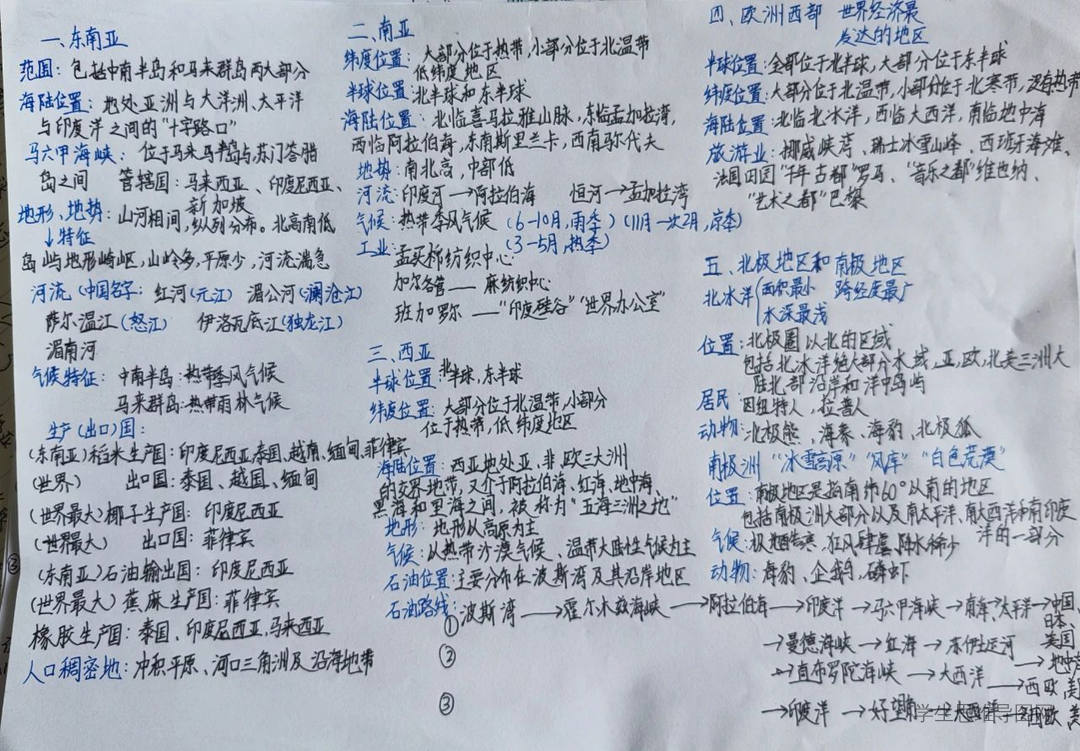 一、东南亚
范围：包括中南半岛和马来群岛两大部分
海陆位置：地处亚洲与大洋洲、太平洋
与印度洋之间的"十字路口"
马六甲海峡：位于马来半岛与苏门答腊
岛之间 管辖国：马来西亚、印度尼西亚、
新加坡
地形、地势：山河相间，纵列分布。北高南低
↓特征
岛屿地形崎岖，山岭多，平原少，河流湍急
河流（中国名字：红河(元江) 湄公河(澜沧江)
萨尔温江(怒江) 伊洛瓦底江(独龙江)
湄南河
气候特征：中南半岛：热带季风气候
马来群岛：热带雨林气候
生产（出口）国：
(东南亚)稻米生产国：印度尼西亚,泰国,越南、缅甸、菲律宾
(世界) 出口国：泰国、越国、缅甸
(世界最大)椰子生产国：印度尼西亚
(世界最大) 出口国：菲律宾
③
(东南亚)石油输出国：印度尼西亚
(世界最大)蕉麻生产国：菲律宾
橡胶生产国：泰国、印度尼西亚,马来西亚
人口稠密地：冲积平原、河口三角洲及沿海地带
二、南亚
纬度位置：大部分位于热带,小部分位于北温带
低纬度地区
半球位置：北半球和东半球
海陆位置：北临喜马拉雅山脉，东临孟加拉湾，
西临阿拉伯海，东南斯里兰卡，西南马尔代夫
地势：南北高，中部低
河流：印度河→阿拉伯海 恒河→孟加拉湾
气候：热带季风气候（6-10月,雨季）（11月-次2月,凉季）
（3-5月,热季）
工业：孟买棉纺织中心
加尔各答——麻纺织中心
班加罗尔——"印度硅谷""世界办公室"
三、西亚
半球位置：北半球，东半球
纬度位置：大部分位于北温带，小部分
位于热带，低纬度地区
海陆位置：西亚地处亚、非、欧三大洲
的交界地带，又介于阿拉伯海、红海、地中海、
黑海和里海之间，被称为"五海三洲之地"
地形：地形以高原为主
气候：以热带沙漠气候、温带大陆性气候为主
石油位置：主要分布在波斯湾及其沿岸地区
石油路线：波斯湾→霍尔木兹海峡→阿拉伯海→印度洋→马六甲海峡→南海→太平洋→中国、
日本、
美国
①
→曼德海峡→红海→苏伊士运河
→地中海
②
→直布罗陀海峡→大西洋→西欧、美
③
→印度洋→好望角→大西洋→西欧、美
四、欧洲西部 世界经济最
发达的地区
半球位置：全部位于北半球，大部分位于东半球
纬度位置：大部分位于北温带，小部分位于北寒带，没有热带
海陆位置：北临北冰洋，西临大西洋，南临地中海
旅游业：挪威峡湾、瑞士冰雪山峰、西班牙海滩、
法国田园"千年古都"罗马、"音乐之都"维也纳、
"艺术之都"巴黎
五、北极地区和南极地区
北冰洋 面积最小 跨经度最广
水深最浅
位置：北极圈以北的区域
包括北冰洋绝大部分水域，亚、欧、北美三洲大
陆北部沿岸和洋中岛屿
居民：因纽特人，拉普人
动物：北极熊、海象、海豹、北极狐
南极洲 "冰雪高原" "风库" "白色荒漠"
位置：南极地区是指南纬60°以南的地区
包括南极洲大部分以及南太平洋、南大西洋和南印度
洋的一部分
气候：极端酷寒，狂风肆虐，降水稀少
动物：海豹、企鹅、磷虾
学生思维导图网